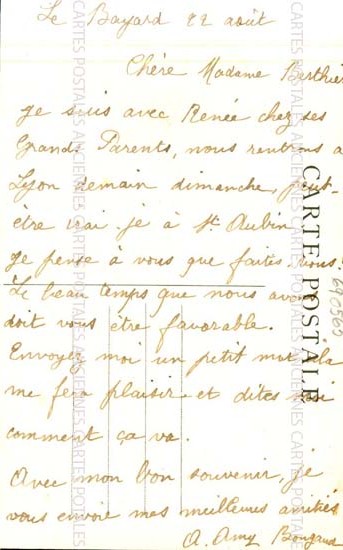 Le Bayard 22 août
Chère Madame Berthier
je suis avec Renée chez ses
Grands Parents, nous rentrons a
Lyon demain dimanche, peut-
être irai je à St Aubin
je pense à vous que faites-vous!
Le beau temps que nous avons
doit vous être favorable.
Envoyez moi un petit mot cela
me fera plaisir et dites moi
comment ça va.
Avec mon bon souvenir, je
vous envoie mes meilleures amitiés
A. Amy
CARTE POSTALE
CARTES POSTALES ANCIENNES CARTES POSTALES ANCIENNES CARTES POSTALES